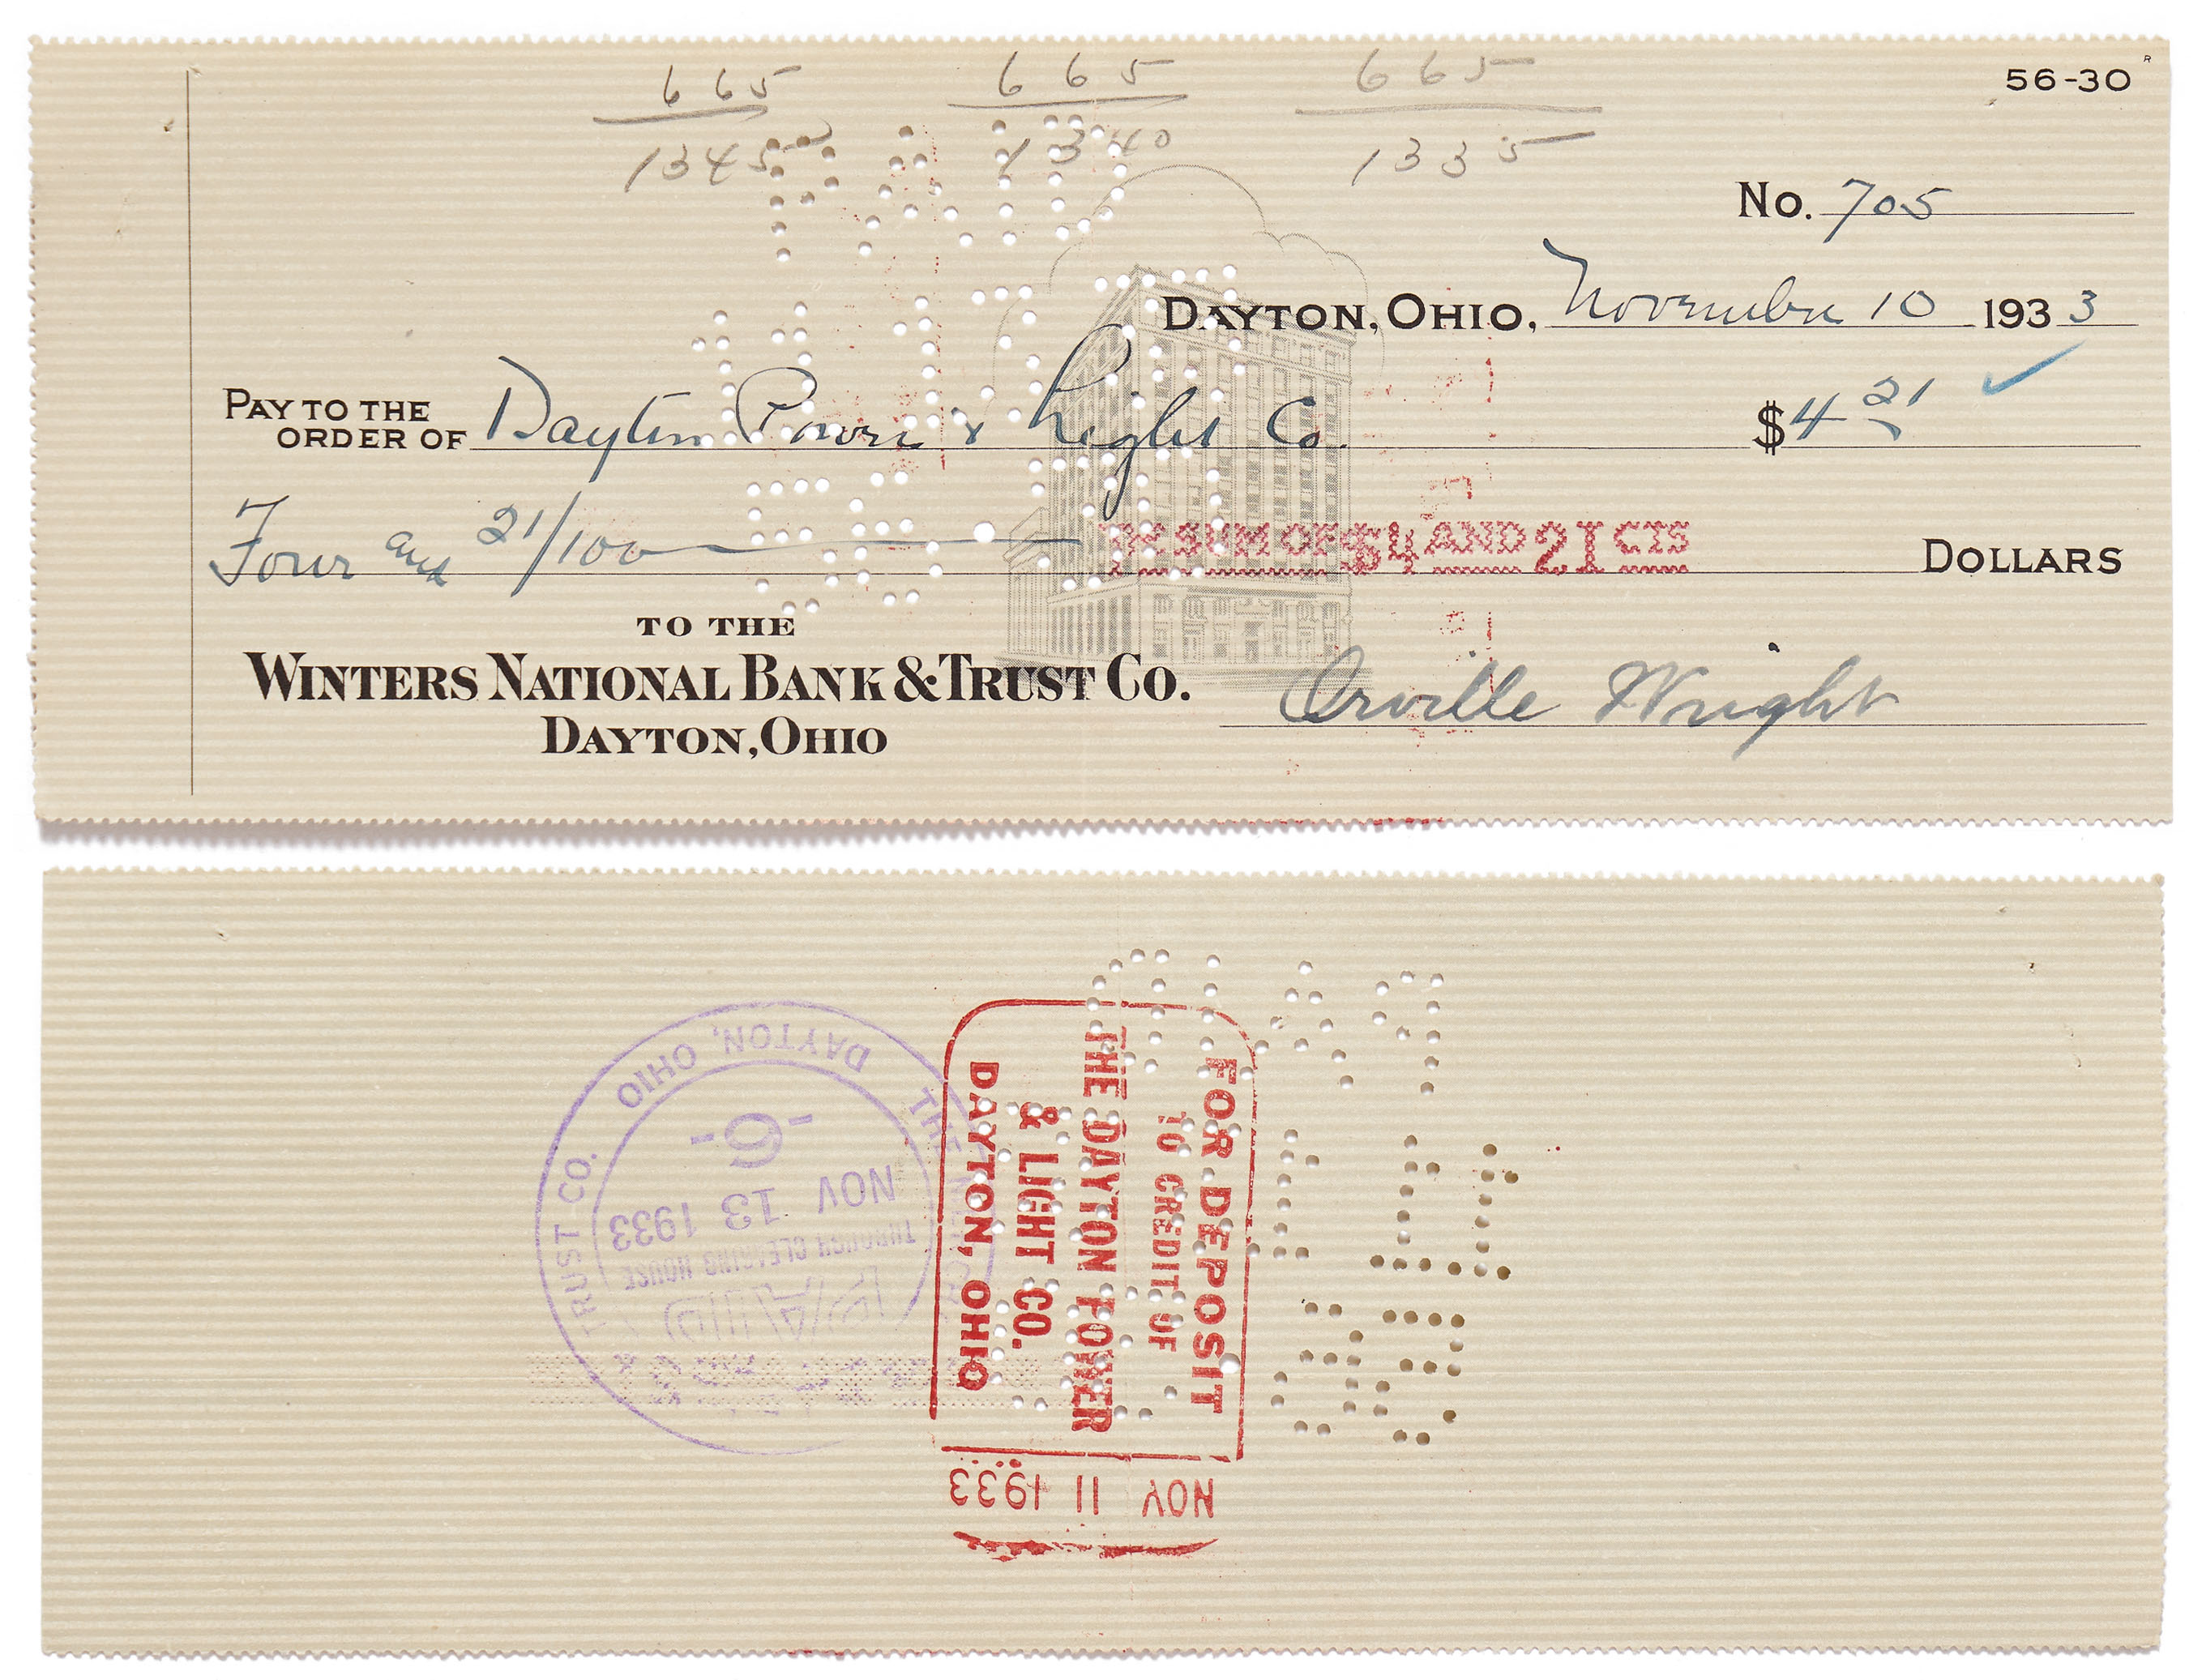 665 665 665
1345 1340 1335
56-30
R
No. 705
DAYTON, OHIO, November 10 1933
PAY TO THE ORDER OF Dayton Power & Light Co. $4 21
Four and 21/100 SUM OF $4 AND 21 CTS DOLLARS
TO THE
WINTERS NATIONAL BANK & TRUST CO.
DAYTON, OHIO
Orville Wright
PAID
11 13 33
56-30
FOR DEPOSIT
TO CREDIT OF
THE DAYTON POWER
& LIGHT CO.
DAYTON, OHIO
NOV 11 1933
THE
TRUST CO.
DAYTON, OHIO
PAID
THROUGH CLEARING HOUSE
NOV 13 1933
-6-